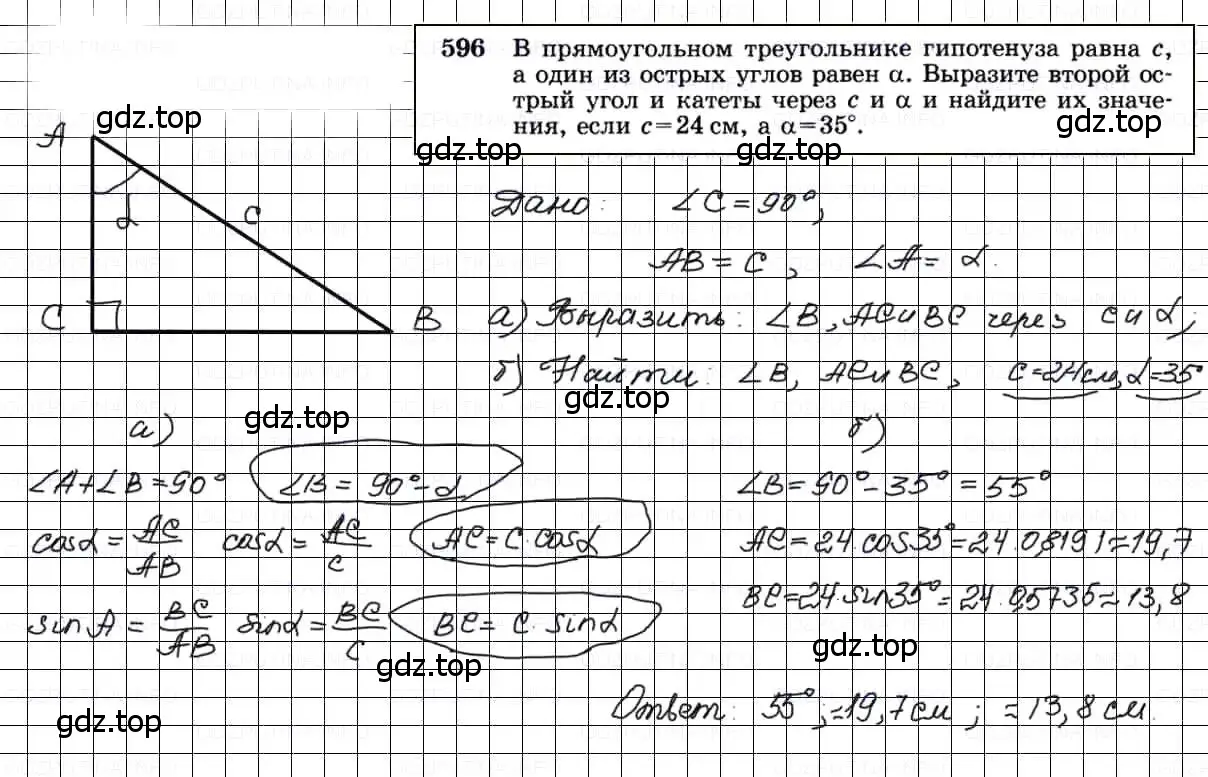 596 В прямоугольном треугольнике гипотенуза равна c,
а один из острых углов равен α. Выразите второй ос-
трый угол и катеты через c и α и найдите их значе-
ния, если c=24 см, а α=35°.
gdz.top
gdz.top
gdz.top
gdz.top
A
α
c
C
B
Дано: ∠C=90°,
AB=c, ∠A=α.
а) Выразить: ∠B, AC и BC через c и α;
б) Найти: ∠B, AC и BC, c=24см, α=35°
gdz.top
gdz.top
а)
∠A+∠B=90° ∠B=90°-α
cosα=AC/AB cosα=AC/c AC=c·cosα
sinA=BC/AB sinα=BC/c BC=c·sinα
gdz.top
gdz.top
б)
∠B=90°-35°=55°
AC=24·cos35°=24·0,8191≈19,7
BC=24·sin35°=24·0,5735≈13,8
gdz.top
Ответ: 55°; ≈19,7см; ≈13,8см.